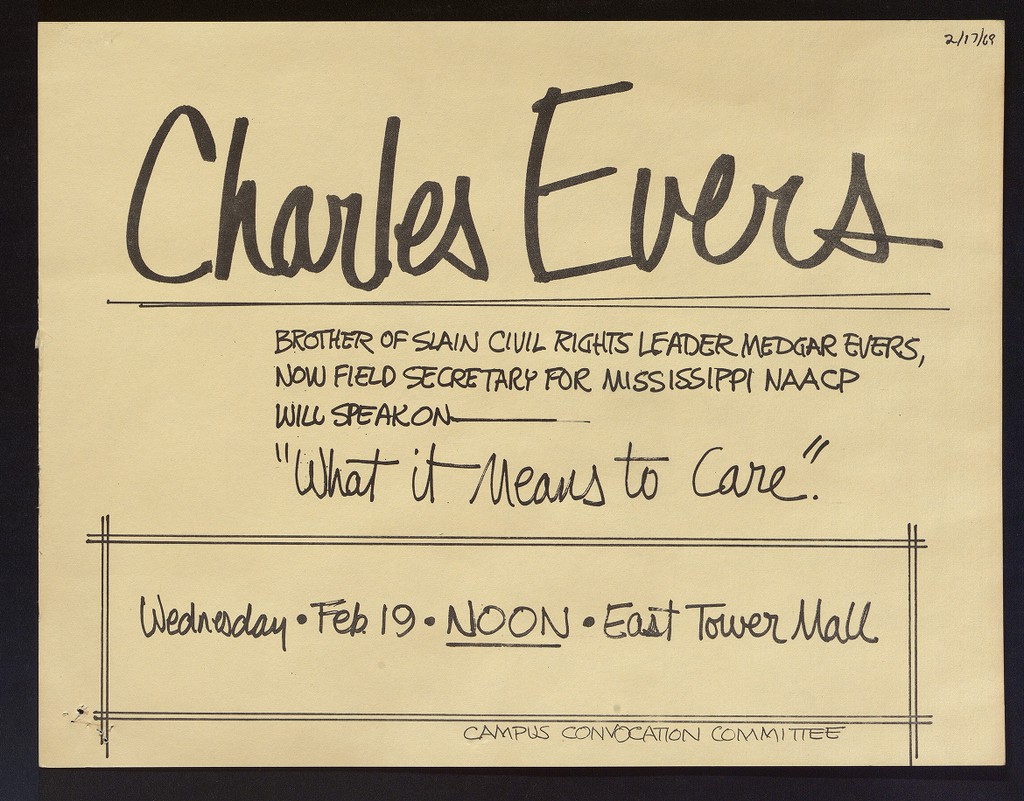 2/17/69
Charles Evers
BROTHER OF SLAIN CIVIL RIGHTS LEADER MEDGAR EVERS,
NOW FIELD SECRETARY FOR MISSISSIPPI NAACP
WILL SPEAK ON
"What it Means to Care".
Wednesday • Feb. 19 • NOON • East Tower Mall
CAMPUS CONVOCATION COMMITTEE